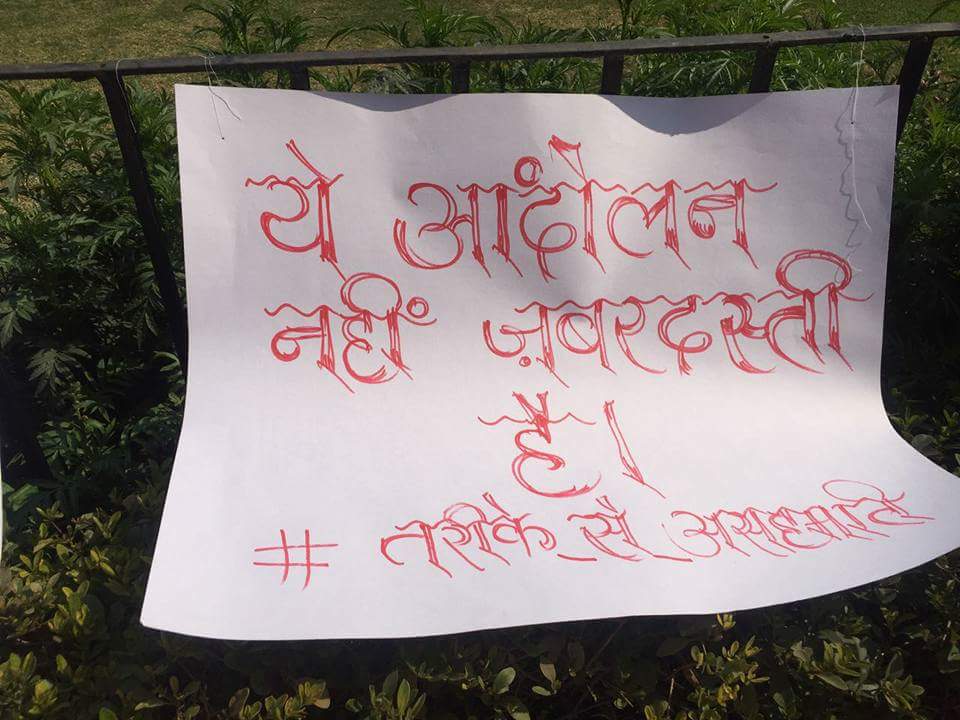 ये आंदोलन
नहीं ज़बरदस्ती
है।
# तरीके_से_असहमति